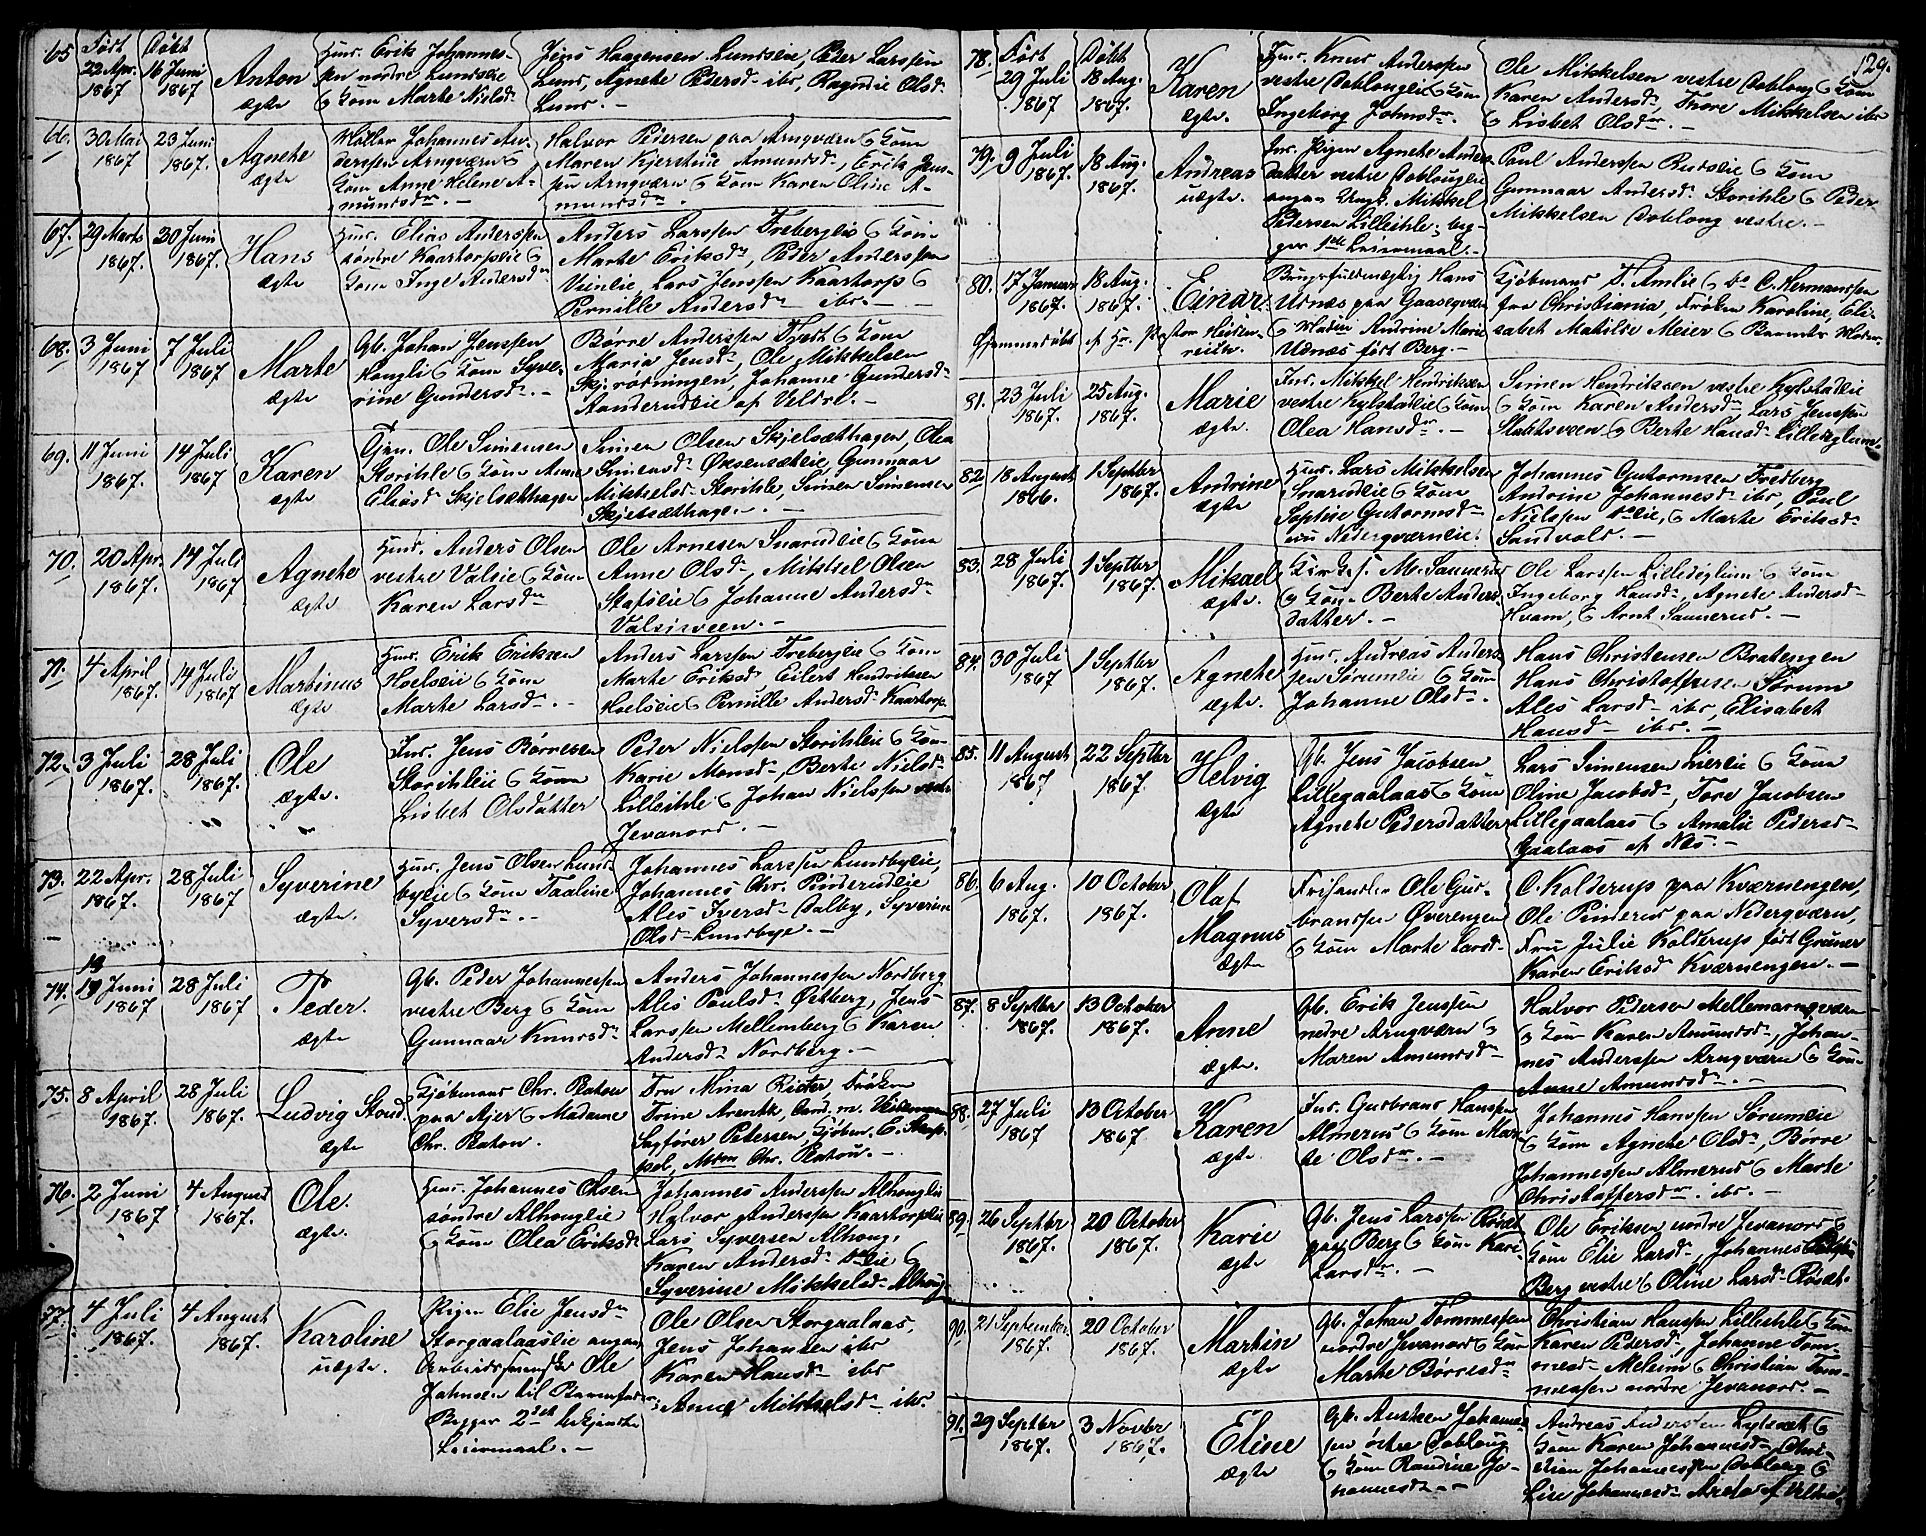 65
Født
22 Apr.
1867
Døbt
16 Juni
1867
Anton
ægte
Huus. Erik Johannes-
sen nordre Lundseie
& Kone Marte Nielsdr
Jens Haagensen Lundseie, Peder Larssen
Lund, Agnete Pedersdr ibr, Ragndie Olsdr
Lund. —
66.
30 Mai
1867
23 Juni
1867.
Agnete
ægte
Møller Johannes An-
derssen Arnqværn &
Kone Anne Helene A-
mundsdr. —
Halvor Pedersen paa Arnqværn & Kone
Maren Kjerstine Amundsd., Erik Jens-
sen Arnqværn & Kone Karen Oline A-
mundsdr. —
67.
29 Marts
1867.
20 Juni
1867.
Hans
ægte
Huus. Elias Anderssen
søndre Kaartorpeie &
Kone Inge Andersdr
Anders Larssen Frebergeie & Kone
Marte Eriksdr, Peder Anderssen
Lars Jenssen Kaartorp &
Pernille Andersdr ibr. —
68.
3 Juni
1867
7 Juli
1867
Marte
ægte
Gb. Johan Jenssen
Hougli & Kone Syve-
rine Gundersdr. —
Børre Anderssen Tvedt & Kone
Maria Jensdr, Ole Mikkelsen
Johanne Gundersdr
Aanderudeie af Veldre. —
69.
11 Juni
1867.
14 Juli
1867
Karen
ægte
Tjen. Ole Simensen
Storihle & Kone Anne
Eliasd. Skjelsæthagen
Simen Olsen Skjelsæthagen, Olea
Simensdr Øksensæteie, Gunnaar
Mikkelsd. Storihle, Simen Simensen
Skjelsæthage. —
70.
20 Apr.
1867.
14 Juli
1867
Agnete
ægte
Huus. Anders Olsen
vestre Valseie & Kone
Karen Larsdr
Ole Arnesen Snarudeie & Kone
Anne Olsdr, Mikkel Olsen
Stafseie & Johanne Andersdr
Valsisveen. —
71.
4 April
1867.
14 Juli
1867
Martinus
ægte
Huus. Erik Eriksen
Hoelseie & Kone
Marte Larsdr. —
Anders Larssen Frebergeie & Kone
Marte Eriksdr, Eilert Hendriksen
Hoelseie & Pernille Andersdr Kaartorp.
72.
3 Juli
1867.
28 Juli
1867.
Ole
ægte.
Ins. Jens Børresen
Storihleie & Kone
Lisbet Olsdatter
Peder Nielssen Storihleie & Kone
Karie Monsdr, Berte Nielsdr
Lilleihle & Johan Nielssen
Jevanord. —
73.
22 Apr.
1867.
28 Juli
1867
Syverine
ægte.
Huus. Jens Olsen Lund-
byeie & Kone Taaline
Syversdr. —
Johannes Larssen Lundbyeie,
Johannes Chr. Pinderudeie
Ales Iversdr Dalby, Syverine
Olsdr Lundbye. —
74.
19
19 Juni
1867
28 Juli
1867
Peder.
ægte
Gb. Peder Johannessen
vestre Berg & Kone
Gunnaar Knudsdr
Anders Johannessen Nordberg
Ales Paulsdr Østberg, Jens
Larssen Mellemberg & Karen
Andersdr Nordberg. —
75.
8 April
1867.
28 Juli
1867.
Ludvig Stoud.
ægte
Kjøbmand Chr. Platou
paa Ajer & Madame
Chr. Platou.
Fru Mina Rister, Frøken
Trine Arentz, Cand. m.
Sagfører Petersen, Kjøbm. C.
Mdm Chr. Platou. —
76.
2 Juni
1867
4 August
1867.
Ole.
ægte.
Huus. Johannes Olsen
søndre Alhougeie
& Kone Olea Eriksdr
Johannes Anderssen Alhougeie
Halvor Anderssen Kaartorpeie
Lars Syversen Alhoug,
Karen Andersdr
Syverine Mikkelsdr Alhoug
77.
4 Juli
1867.
4 August
1867.
Karoline
uægte.
Pigen Elie Jensdr
Storgaalaaseie angav
Arbeidsmand Ole
Johnsen til Barnefader.
Begges 2det bekjendte
Leiermaal. —
Ole Olsen Storgaalaas,
Jens Johansen ibr
Karen Hansdr ibr
Anne Mikkelsdr ibr.
129.
78.
Født
29 Juli
1867
Døbt
18 Aug.
1867.
Karen
ægte.
Huus. Knud Anderssen
vestre Doblougeie & Kone
Ingeborg Johnsdr.
Ole Mikkelsen vestre Dobloug & Kone
Karen Andersdr, Thore Mikkelsen ibr
& Lisbet Olsdr. —
79.
9 Juli
1867.
18 Aug.
1867.
Andreas
uægte.
Ins. Pigen Agnete Anders-
datter vestre Doblougeie
angav Ungk. Mikkel
Pedersen Lilleihle; beg-
ges 1ste Leiermaal. —
Paul Anderssen Rudseie & Kone
Gunnaar Andersdr Storihle & Peder
Mikkelsen Dobloug vestre. —
80.
17 Januar
1867.
18 Aug.
1867.
Einar
Hjemmedøbt af Hr. Pastor Heiden-
reich.
Brugsfuldmægtig Hans
Udnæs paa Gaasegværn
& Madm Andrine Marie
Udnæs født Berg. —
Kjøbmand T. Amlie & Do C. Hermanssen
fra Christiania, Frøken Karoline, Eli-
sabet Matilde Meier & Barnets Moder.
81.
23 Juli
1867.
25 Aug.
1867.
Marie
ægte.
Ins. Mikkel Hendriksen
vestre Kylstadeie & Kone
Olea Hansdr. —
Simen Hendriksen vestre Kylstadeie
& Kone Karen Andersdr, Lars Jenssen
Slaatsveen & Berte Hansdr Lilleiglum.
82.
18 August
1866.
1 Septbr
1867.
Andrine
ægte
Huus. Lars Mikkelsen
Snarudeie & Kone
Sophie Gutormsdr
nu Nedreqværneie.
Johannes Gutormsen Fredberg
Andrine Johannesdr ibr, Paul
Nielssen Doeie, & Marte Eriksdr
Sandvold. —
83.
28 Juli
1867.
1 Septbr
1867.
Mikael
ægte.
Kirkes. M. Sannerud
& Kone Berte Anders-
datter. —
Ole Larssen Lilleiglum & Kone
Ingeborg Hansdr, Agnete Andersdr
Hvam, & Arnt Sannerud. —
84.
30 Juli
1867
1 Septbr
1867.
Agnete
ægte.
Huus. Andreas Anders-
sen Sørumeie & Kone
Johanne Olsdr. —
Hans Christensen Bratengen
Hans Christoffersen Sørum
Ales Larsdr ibr, Elisabet
Hansdr ibr. —
85.
11 August
1867
22 Septbr
1867.
Helvig
ægte
Gb. Jens Jacobsen
Lillegaalaas & Kone
Agnete Pedersdatter
Lars Simensen Liereie & Kone
Oline Jacobsdr, Tore Jacobsen
Lillegaalaas & Amalie Pedersdr
Gaalaas af Næs. —
86.
6 Aug.
1867.
10 October
1867.
Olaf
Magnus
ægte
Frihandler Ole Gud-
brandsen Øverengen
& Kone Marte Larsdr
O. Kolderup paa Kværnengen,
Ole Pinderud paa Nederqværn,
Fru Julie Kolderup født Grüner
Karen Eriksdr Kværnengen. —
87.
8 Septbr
1867.
13 October
1867.
Anne
ægte.
Gb. Erik Jenssen
nedre Arnqværn &
Maren Amundsdr
Halvor Pedersen Mellemarnqværn
& Kone Karen Amundsdr, Johan-
nes Anderssen Arnqværn & Kone
Anne Amundsdr. —
88.
27 Juli
1867
13 October
1867.
Karen
ægte.
Ins. Gudbrand Hanssen
Almerud & Kone Mar-
te Olsdr. —
Johannes Hanssen Sørumeie
& Kone Agnete Olsdr, Børre
Johannessen Almerud & Marte
Christoffersdr. ibr. —
89.
26 Septbr
1867.
20 October
1867.
Karie
ægte.
Gb. Jens Larssen Røsæt
paa Berg & Kone Kari
Larsdr. —
Ole Eriksen nordre Jevanord &
Kone Elie Larsdr, Johannes
Berg vestre & Oline Larsdr Røsæt.
90.
21 September
1867.
20 October
1867.
Martin
ægte
Gb. Johan Tommessen
nordre Jevanord & Kone
Marte Børresdr
Christian Hanssen Lilleihle & Kone
Karen Pedersdr, Johanne Tom-
mesdr Melum & Christian Tom-
messen nordre Jevanord. —
91.
29 Septbr
1867.
3 Novbr
1867.
Eline
ægte
Gb. Anders Johannes-
sen østre Dobloug
& Kone Randine Jo-
hannesdr —
Andreas Anderssen &
Kone Karen Johannesdr, Chri-
stian Johannessen Dobloug &
Lise Johannesdr af Veldre.